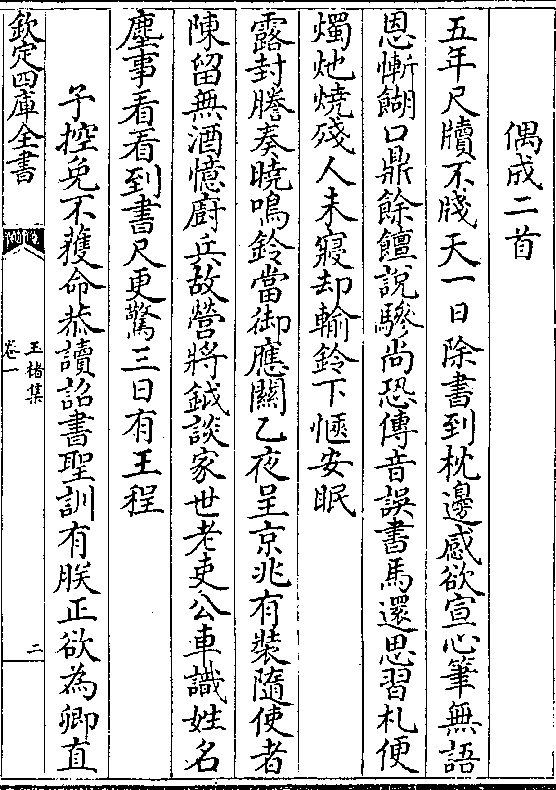 偶成二首
五年尺牘不牋天一日除書到枕邊感欲宣心筆無語
恩慚餬口鼎餘饘說驂尚恐傳音誤書馬還思習札便
燭灺燒殘人未寢却輸鈴下愜安眠
露封謄奏曉鳴鈴當御應關乙夜呈京兆有裝隨使者
陳留無酒憶廚兵故營將鉞談家世老吏公車識姓名
塵事看看到書尺更驚三日有王程
子控免不獲命恭讀詔書聖訓有朕正欲為卿直
欽定四庫全書
玉楮集
卷一
二